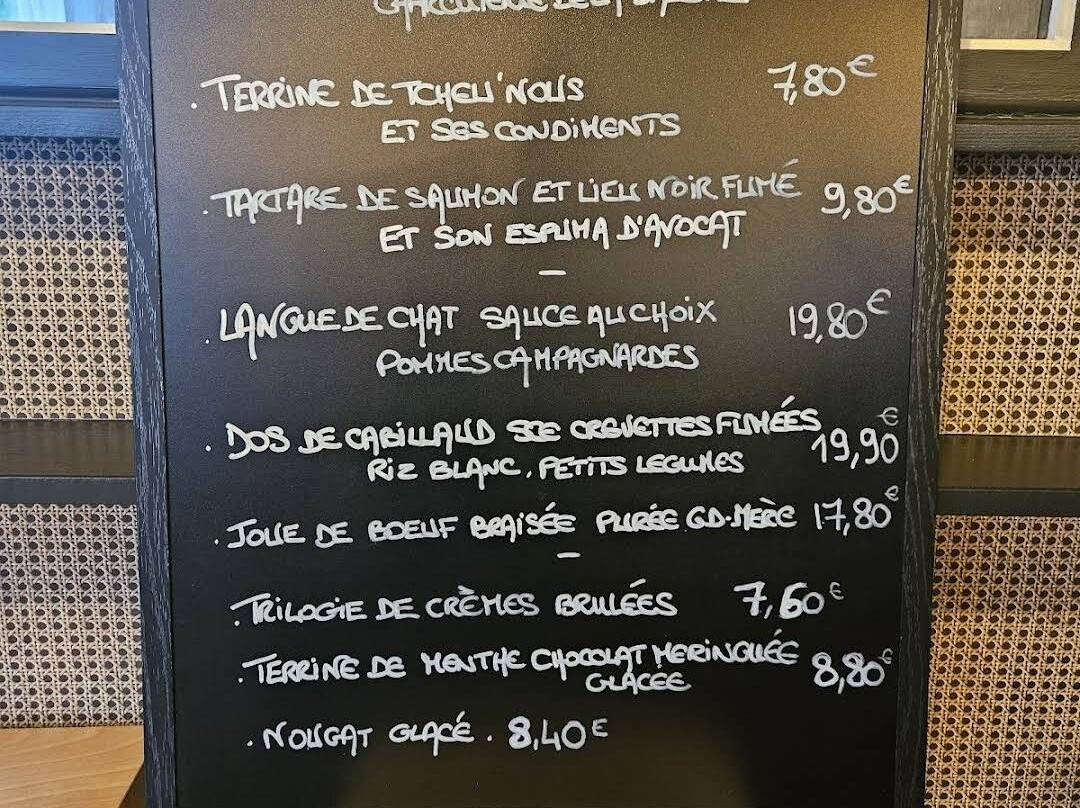 . TERRINE DE TCHEU'NOUS 7,80€
ET SES CONDIMENTS
. TARTARE DE SAUMON ET LIEU NOIR FUMÉ 9,80€
ET SON ESPUMA D'AVOCAT
—
. LANGUE DE CHAT SAUCE AU CHOIX 19,80€
POMMES CAMPAGNARDES
. DOS DE CABILLAUD SCE CREVETTES FUMÉES 19,90€
RIZ BLANC, PETITS LEGUMES
. JOUE DE BOEUF BRAISÉE PURÉE GD-MERÈ 17,80€
—
. TRILOGIE DE CRÈMES BRULÉES 7,60€
. TERRINE DE MENTHE CHOCOLAT MERINGUÉE 8,80€
GLACEE
. NOUGAT GLACÉ . 8,40€